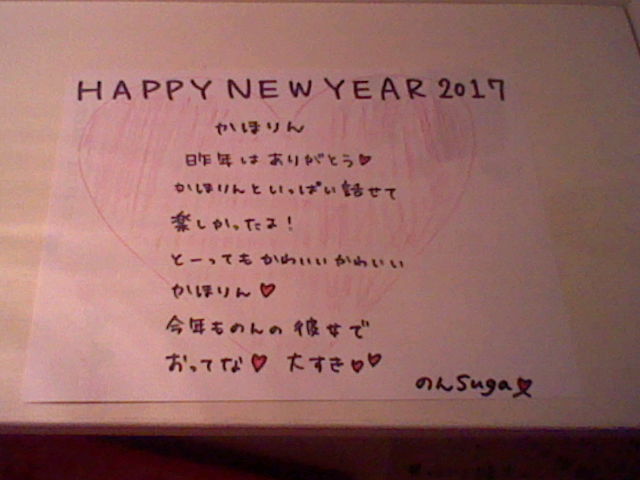 HAPPY NEW YEAR 2017
かほりん
昨年はありがとう♥
かほりんといっぱい話せて
楽しかったよ!
とーってもかわいいかわいい
かほりん♥
今年ものんの彼女で
おってな♥ 大すき♥♥
のんSuga